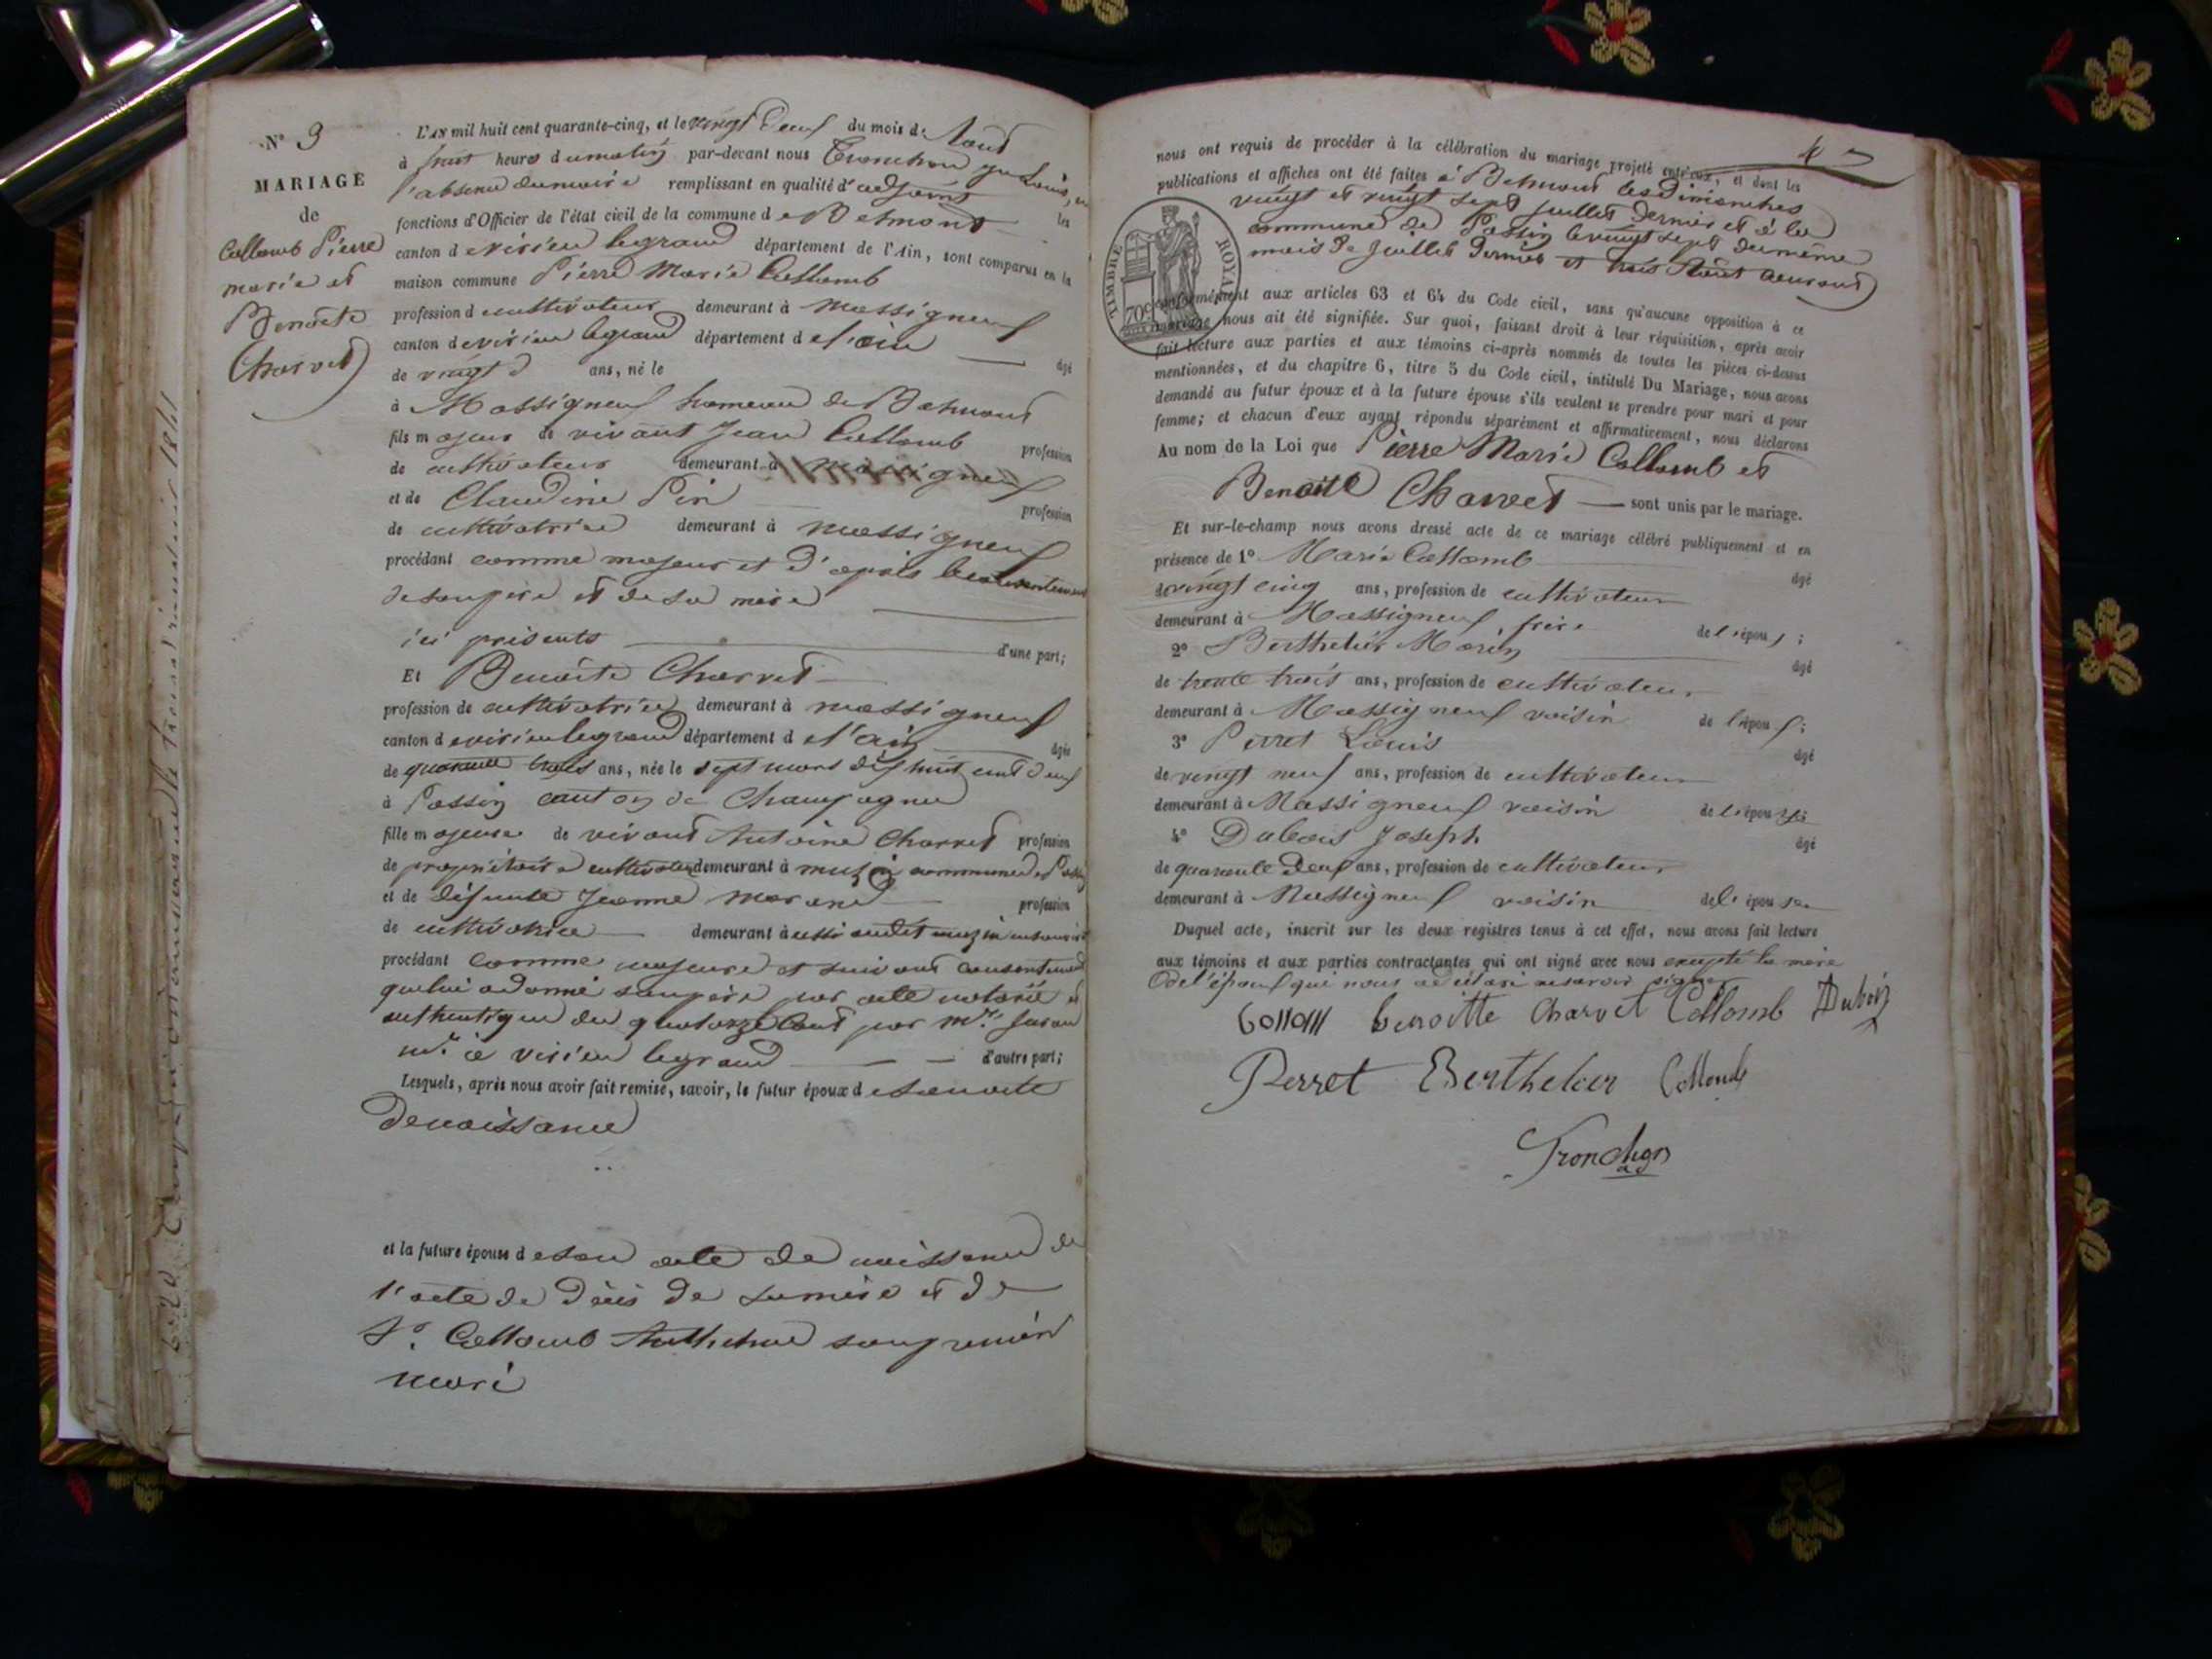 N° 9
MARIAGE
de
Collomb Pierre
marie et
Benoite
Charvet
L'AN mil huit cent quarante-cinq, et le vingt deux du mois de Aout
à huit heures du matin par-devant nous Tronchon
l'absence du maire remplissant en qualité d'adjoint les
fonctions d'Officier de l'état civil de la commune de Belmont
canton de virieu legrand département de l'Ain, sont comparus en la
maison commune Pierre Marie Collomb
profession de cultivateur demeurant à massigneux
canton de virieu legrand département de l'ain âgé
de vingt ans, né le
à Massigneux hameau de Belmont
fils majeur de vivant Jean Collomb profession
de cultivateur demeurant à massigneux
et de Claudine Pin profession
de cultivatrice demeurant à massigneux
procédant comme majeur et d'après le consentement
de son père et de sa mère
ici présents d'une part;
Et Benoite Charvet
profession de cultivatrice demeurant à massigneux
canton de virieu legrand département de l'ain âgée
de quarante trois ans, née le sept mars dix huit cent deux
à Passin canton de Champagne
fille majeure de vivant Antoine Charvet profession
de propriétaire cultivateur demeurant à muzin commune de Passin
et de défunte Jeanne profession
de cultivatrice demeurant à aussi audit muzin
procédant comme majeure et suivant consentement
que lui a donné son père par acte notarié et
authentique du quatorze aout par Mtre
à virieu legrand d'autre part;
Lesquels, après nous avoir fait remise, savoir, le futur époux de son acte
de naissance
et la future épouse de son acte de naissance de
l'acte de décès de sa mère et de
Sr. Collomb Anthelme son premier
mari
nous ont requis de procéder à la célébration du mariage projeté entr'eux, et dont les
publications et affiches ont été faites à Belmont les Dimanches
vingt et vingt sept juillet dernier et à la
commune de Passin le vingt sept du même
mois de juillet dernier et trois Aout courant
TIMBRE ROYAL
70c
conformément aux articles 63 et 64 du Code civil, sans qu'aucune opposition à ce
mariage nous ait été signifiée. Sur quoi, faisant droit à leur réquisition, après avoir
fait lecture aux parties et aux témoins ci-après nommés de toutes les pièces ci-dessus
mentionnées, et du chapitre 6, titre 5 du Code civil, intitulé Du Mariage, nous avons
demandé au futur époux et à la future épouse s'ils veulent se prendre pour mari et pour
femme; et chacun d'eux ayant répondu séparément et affirmativement, nous déclarons
Au nom de la Loi que Pierre Marie Collomb et
Benoite Charvet sont unis par le mariage.
Et sur-le-champ nous avons dressé acte de ce mariage célébré publiquement et en
présence de 1° Marie Collomb âgé
de vingt cinq ans, profession de cultivateur
demeurant à Massigneux, frère de l'époux;
2° Berthelier Marin âgé
de trente trois ans, profession de cultivateur
demeurant à Massigneux voisin de l'époux;
3° Perret Louis âgé
de vingt neuf ans, profession de cultivateur
demeurant à Massigneux voisin de l'épouse
4° Dubois Joseph âgé
de quarante deux ans, profession de cultivateur
demeurant à Massigneux voisin de l'épouse
Duquel acte, inscrit sur les deux registres tenus à cet effet, nous avons fait lecture
aux témoins et aux parties contractantes qui ont signé avec nous excepté la mère
de l'époux qui nous a déclaré ne savoir signer
Collomb benoitte charvet Collomb Dubois
Perret Berthelier Collomb
Tronchon